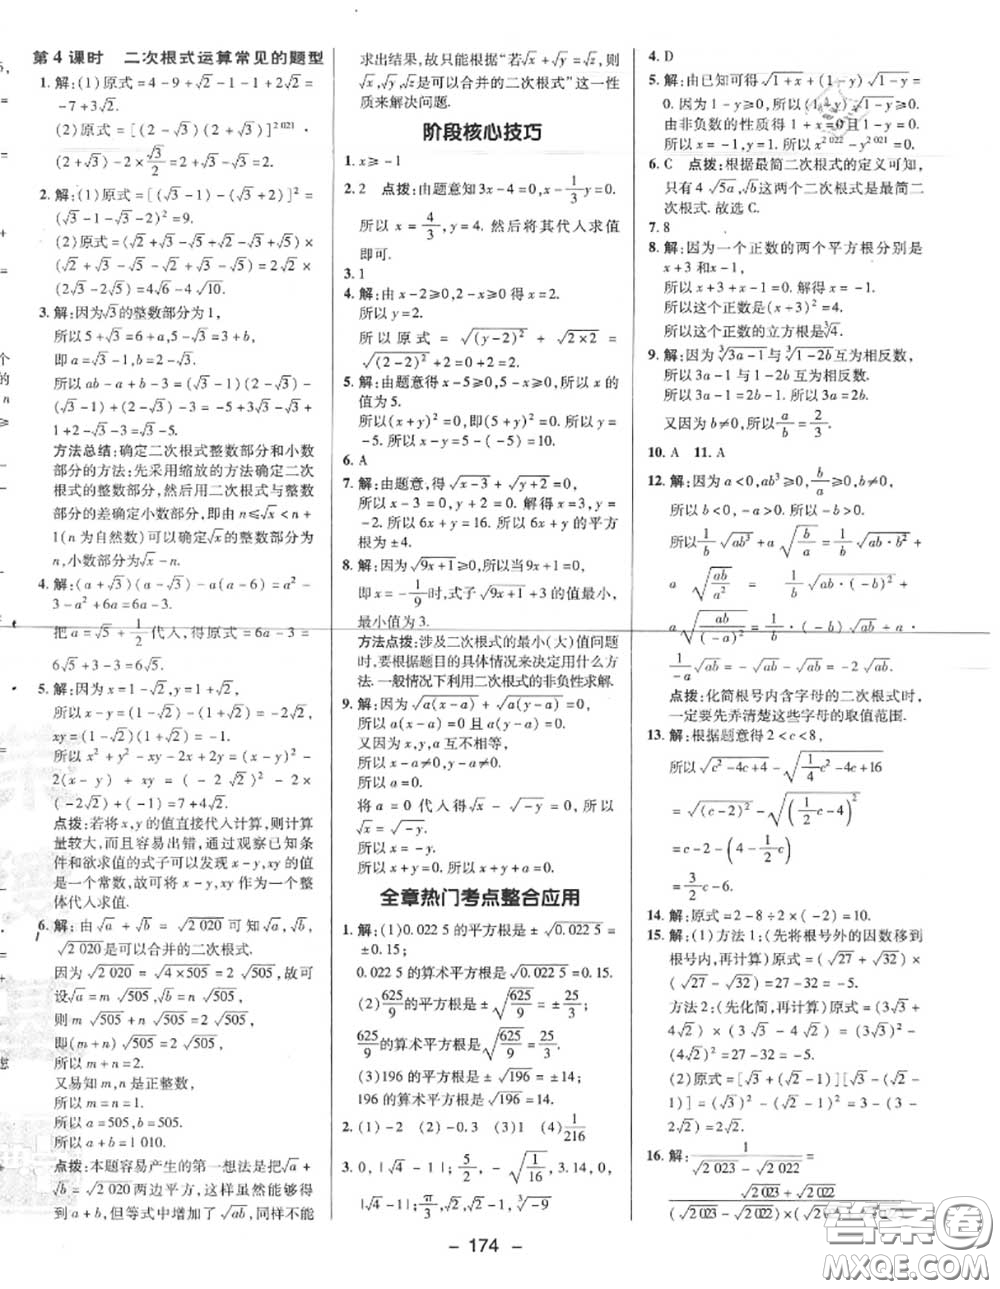 第4课时 二次根式运算常见的题型
1. 解:(1)原式=4-9+√2-1-1+2√2=
-7+3√2.
(2)原式=[(2-√3)(2+√3)]²⁰²¹·
(2+√3)-2×√3/2=2+√3-√3=2.
2. 解:(1)原式=[(√3-1)-(√3+2)]²=
(√3-1-√3-2)²=9.
(2)原式=(√2+√3-√5+√2-√3+√5)×
(√2+√3-√5-√2+√3+√5)=2√2×
(2√3-2√5)=4√6-4√10.
3. 解:因为√3的整数部分为1,
所以5+√3=6+a,5-√3=3+b,
即a=√3-1,b=2-√3.
所以ab-a+b-3=(√3-1)(2-√3)-
(√3-1)+(2-√3)-3=-5+3√3-√3+
1+2-√3-3=√3-5.
方法总结:确定二次根式整数部分和小数
部分的方法:先采用缩放的方法确定二次
根式的整数部分,然后用二次根式与整数
部分的差确定小数部分,即由n≤√x<n+
1(n为自然数)可以确定√x的整数部分为
n,小数部分为√x-n.
4. 解:(a+√3)(a-√3)-a(a-6)=a²-
3-a²+6a=6a-3.
把a=√5+1/2代入,得原式=6a-3=
6√5+3-3=6√5.
5. 解:因为x=1-√2,y=1+√2,
所以x-y=(1-√2)-(1+√2)=-2√2,
xy=(1-√2)(1+√2)=-1.
所以x²+y²-xy-2x+2y=(x-y)²-
2(x-y)+xy=(-2√2)²-2×
(-2√2)+(-1)=7+4√2.
点拨:若将x,y的值直接代入计算,则计算
量较大,而且容易出错,通过观察已知条
件和欲求值的式子可以发现x-y,xy的值
是一个常数,故可将x-y,xy作为一个整
体代入求值.
6. 解:由√a+√b=√2 020与√a,√b,
√2 020是可以合并的二次根式.
因为√2 020=√4×505=2√505,故可
设√a=m√505,√b=n√505,
则m√505+n√505=2√505,
即(m+n)√505=2√505.
所以m+n=2.
又易知m,n是正整数,
所以m=n=1.
所以a=505,b=505.
所以a+b=1 010.
点拨:本题容易产生的第一想法是把√a+
√b=√2 020两边平方,这样虽然能够得
到a+b,但等式中增加了√ab,同样不能
求出结果,故只能使用“若√x+√y=√z,
则√x,√y,√z是可以合并的二次根式”这一性
质来解决问题.
阶段核心技巧
1. x≥-1
2. 2 点拨:由题意知3x-4=0,x-1/3y=0.
所以x=4/3,y=4.然后将其代入求值
即可.
3. 1
4. 解:由x-2≥0,2-x≥0得x=2.
所以y=2.
所以原式=√(y-2)²+√2×2=
√(2-2)²+2=0+2=2.
5. 解:由题意得x-5≥0,5-x≥0,所以x的
值为5.
所以(x+y)²=0,即(5+y)²=0.所以y=
-5.所以x-y=5-(-5)=10.
6. A
7. 解:由题意,得√x-3+√y+2=0,
所以x-3=0,y+2=0.解得x=3,y=
-2.所以6x+y=16.所以6x+y的平方
根为±4.
8. 解:因为√9x+1≥0,所以当9x+1=0,
即x=-1/9时,式子√9x+1+3的值最小,
最小值为3.
方法点拨:涉及二次根式的最小(大)值问题
时,要根据题目的具体情况来决定用什么方
法.一般情况下利用二次根式的非负性求解.
9. 解:因为√a(x-a)+√a(y-a)=0,
所以a(x-a)=0且a(y-a)=0.
又因为x,y,a互不相等,
所以x-a≠0,y-a≠0.
所以a=0.
将a=0代入得√x-√-y=0,所以
√x=√-y.
所以x=-y.
所以x+y=0.所以x+y=0.
全章热门考点整合应用
1. 解:(1)0.022 5的平方根是±√0.022 5=
±0.15;
0.022 5的算术平方根是√0.022 5=0.15.
(2)625/9的平方根是±√625/9=±25/3;
625/9的算术平方根是√625/9=25/3.
(3)196的平方根是±√196=±14;
196的算术平方根是√196=14.
2. (1)-2 (2)-0.3 (3)1 (4)1/216
3. 0,|√4-1|;5/2,-√1/16,3.14,0,
|√4-1|;π/3,√2,|√2-1|,∛-9
4. D
5. 解:由已知可得√1+x+(1-y)√1-y=
0.因为1-y≥0,所以(1-y)√1-y≥0.
由非负数的性质得1+x=0,1-y=0.
所以x=-1,y=1.所以x²⁰²²-y²⁰²²=0.
6. C 点拨:根据最简二次根式的定义可知,
只有4√5a,√b这两个二次根式是最简二
次根式.故选C.
7. 8
8. 解:因为一个正数的两个平方根分别是
x+3和x-1,
所以x+3+x-1=0.解得x=-1.
所以这个正数是(x+3)²=4.
所以这个正数的立方根是∛4.
9. 解:因为∛3a-1与∛1-2b互为相反数,
所以3a-1与1-2b互为相反数.
所以3a-1=2b-1.所以3a=2b.
又因为b≠0,所以a/b=2/3.
10. A 11. A
12. 解:因为a<0,ab³≥0,b/a≥0,b≠0,
所以b<0,-a>0.所以-b>0.
所以1/b√ab³+a√b/a=1/b√ab·b²+
a√ab/a²=1/b√ab·(-b)²+
a√ab/(-a)²=1/b·(-b)√ab+a·
1/-a√ab=-√ab-√ab=-2√ab.
点拨:化简根号内含字母的二次根式时,
一定要先弄清楚这些字母的取值范围.
13. 解:根据题意得2<c<8,
所以√c²-4c+4-√1/4c²-4c+16
=√(c-2)²-√(1/2c-4)²
=c-2-(4-1/2c)
=3/2c-6.
14. 解:原式=2-8÷2×(-2)=10.
15. 解:(1)方法1:(先将根号外的因数移到
根号内,再计算)原式=(√27+√32)×
(√27-√32)=27-32=-5.
方法2:(先化简,再计算)原式=(3√3+
4√2)×(3√3-4√2)=(3√3)²-
(4√2)²=27-32=-5.
(2)原式=[√3+(√2-1)][√3-
(√2-1)]=(√3)²-(√2-1)²=3-3+
2√2=2√2.
16. 解:1/√2 023-√2 022=
√2 023+√2 022/(√2 023-√2 022)×(√2 023+√2 022)
- 174 -
答案圈
MXQE.COM